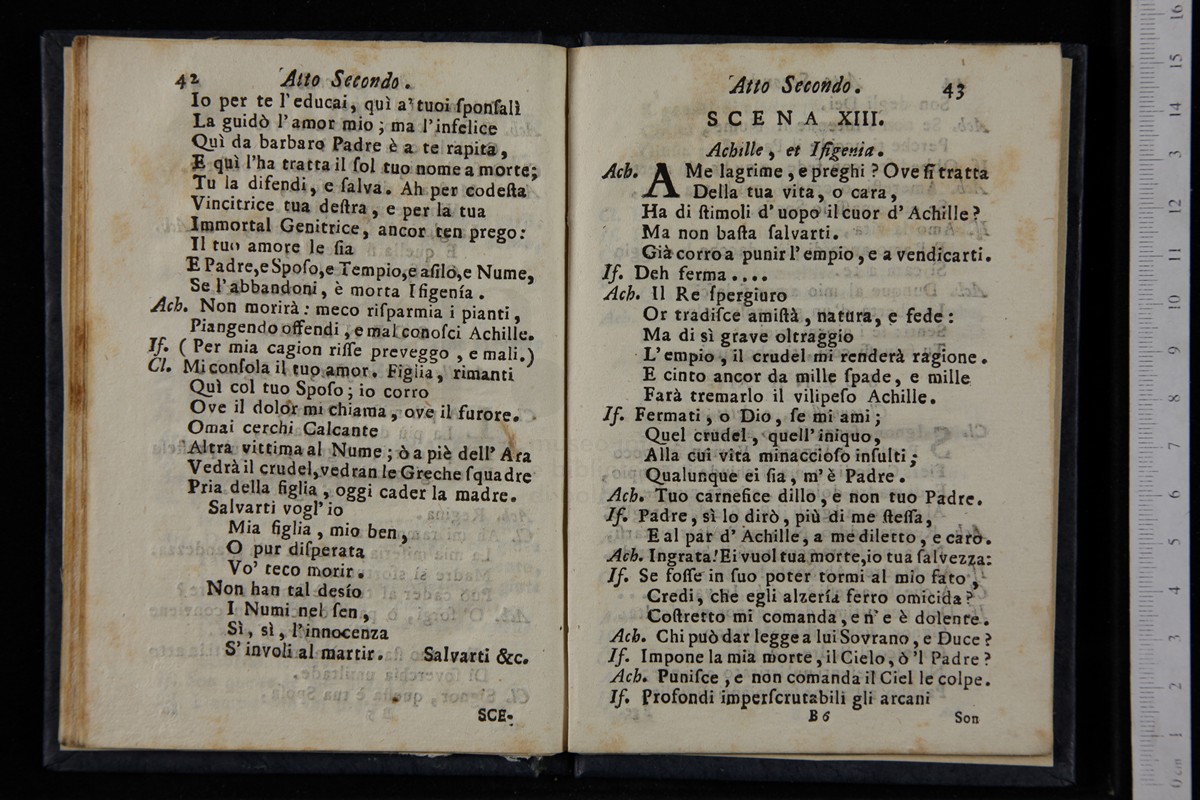 42 Atto Secondo.
Io per te l'educai, quì a' tuoi ſponſali
La guidò l'amor mio; ma l'infelice
Quì da barbaro Padre è a te rapita,
E quì l'ha tratta il ſol tuo nome a morte;
Tu la difendi, e ſalva. Ah per codeſta
Vincitrice tua deſtra, e per la tua
Immortal Genitrice, ancor ten prego:
Il tuo amore le ſia
E Padre,e Spoſo,e Tempio,e aſilo,e Nume,
Se l'abbandoni, è morta Ifigenía.
Ach. Non morirà: meco riſparmia i pianti,
Piangendo offendi, e mal conoſci Achille.
If. (Per mia cagion riſſe preveggo, e mali.)
Cl. Mi conſola il tuo amor. Figlia, rimanti
Quì col tuo Spoſo; io corro
Ove il dolor mi chiama, ove il furore.
Omai cerchi Calcante
Altra vittima al Nume; ò a piè dell' Ara
Vedrà il crudel,vedran le Greche ſquadre
Pria della figlia, oggi cader la madre.
Salvarti vogl' io
Mia figlia, mio ben,
O pur diſperata
Vo' teco morir.
Non han tal desío
I Numi nel ſen,
Sì, sì, l'innocenza
S' involi al martir. Salvarti &c.
SCE-
Atto Secondo. 43
SCENA XIII.
Achille, et Ifigenia.
Ach. A Me lagrime, e preghi? Ove ſi tratta
Della tua vita, o cara,
Ha di ſtimoli d' uopo il cuor d' Achille?
Ma non baſta ſalvarti.
Già corro a punir l' empio, e a vendicarti.
If. Deh ferma....
Ach. Il Re ſpergiuro
Or tradiſce amiſtà, natura, e fede:
Ma di sì grave oltraggio
L' empio, il crudel mi renderà ragione.
E cinto ancor da mille ſpade, e mille
Farà tremarlo il vilipeſo Achille.
If. Fermati, o Dio, ſe mi ami;
Quel crudel, quell' iniquo,
Alla cui vita minaccioſo inſulti;
Qualunque ei ſia, m' è Padre.
Ach. Tuo carnefice dillo, e non tuo Padre.
If. Padre, sì lo dirò, più di me ſteſſa,
E al par d' Achille, a me diletto, e caro.
Ach. Ingrata! Ei vuol tua morte,io tua ſalvezza:
If. Se foſſe in ſuo poter tormi al mio fato,
Credi, che egli alzería ferro omicida?
Coſtretto mi comanda, e n' e è dolente.
Ach. Chi può dar legge a lui Sovrano, e Duce?
If. Impone la mia morte, il Cielo, ò 'l Padre?
Ach. Puniſce, e non comanda il Ciel le colpe.
If. Profondi imperſcrutabili gli arcani
B 6 Son